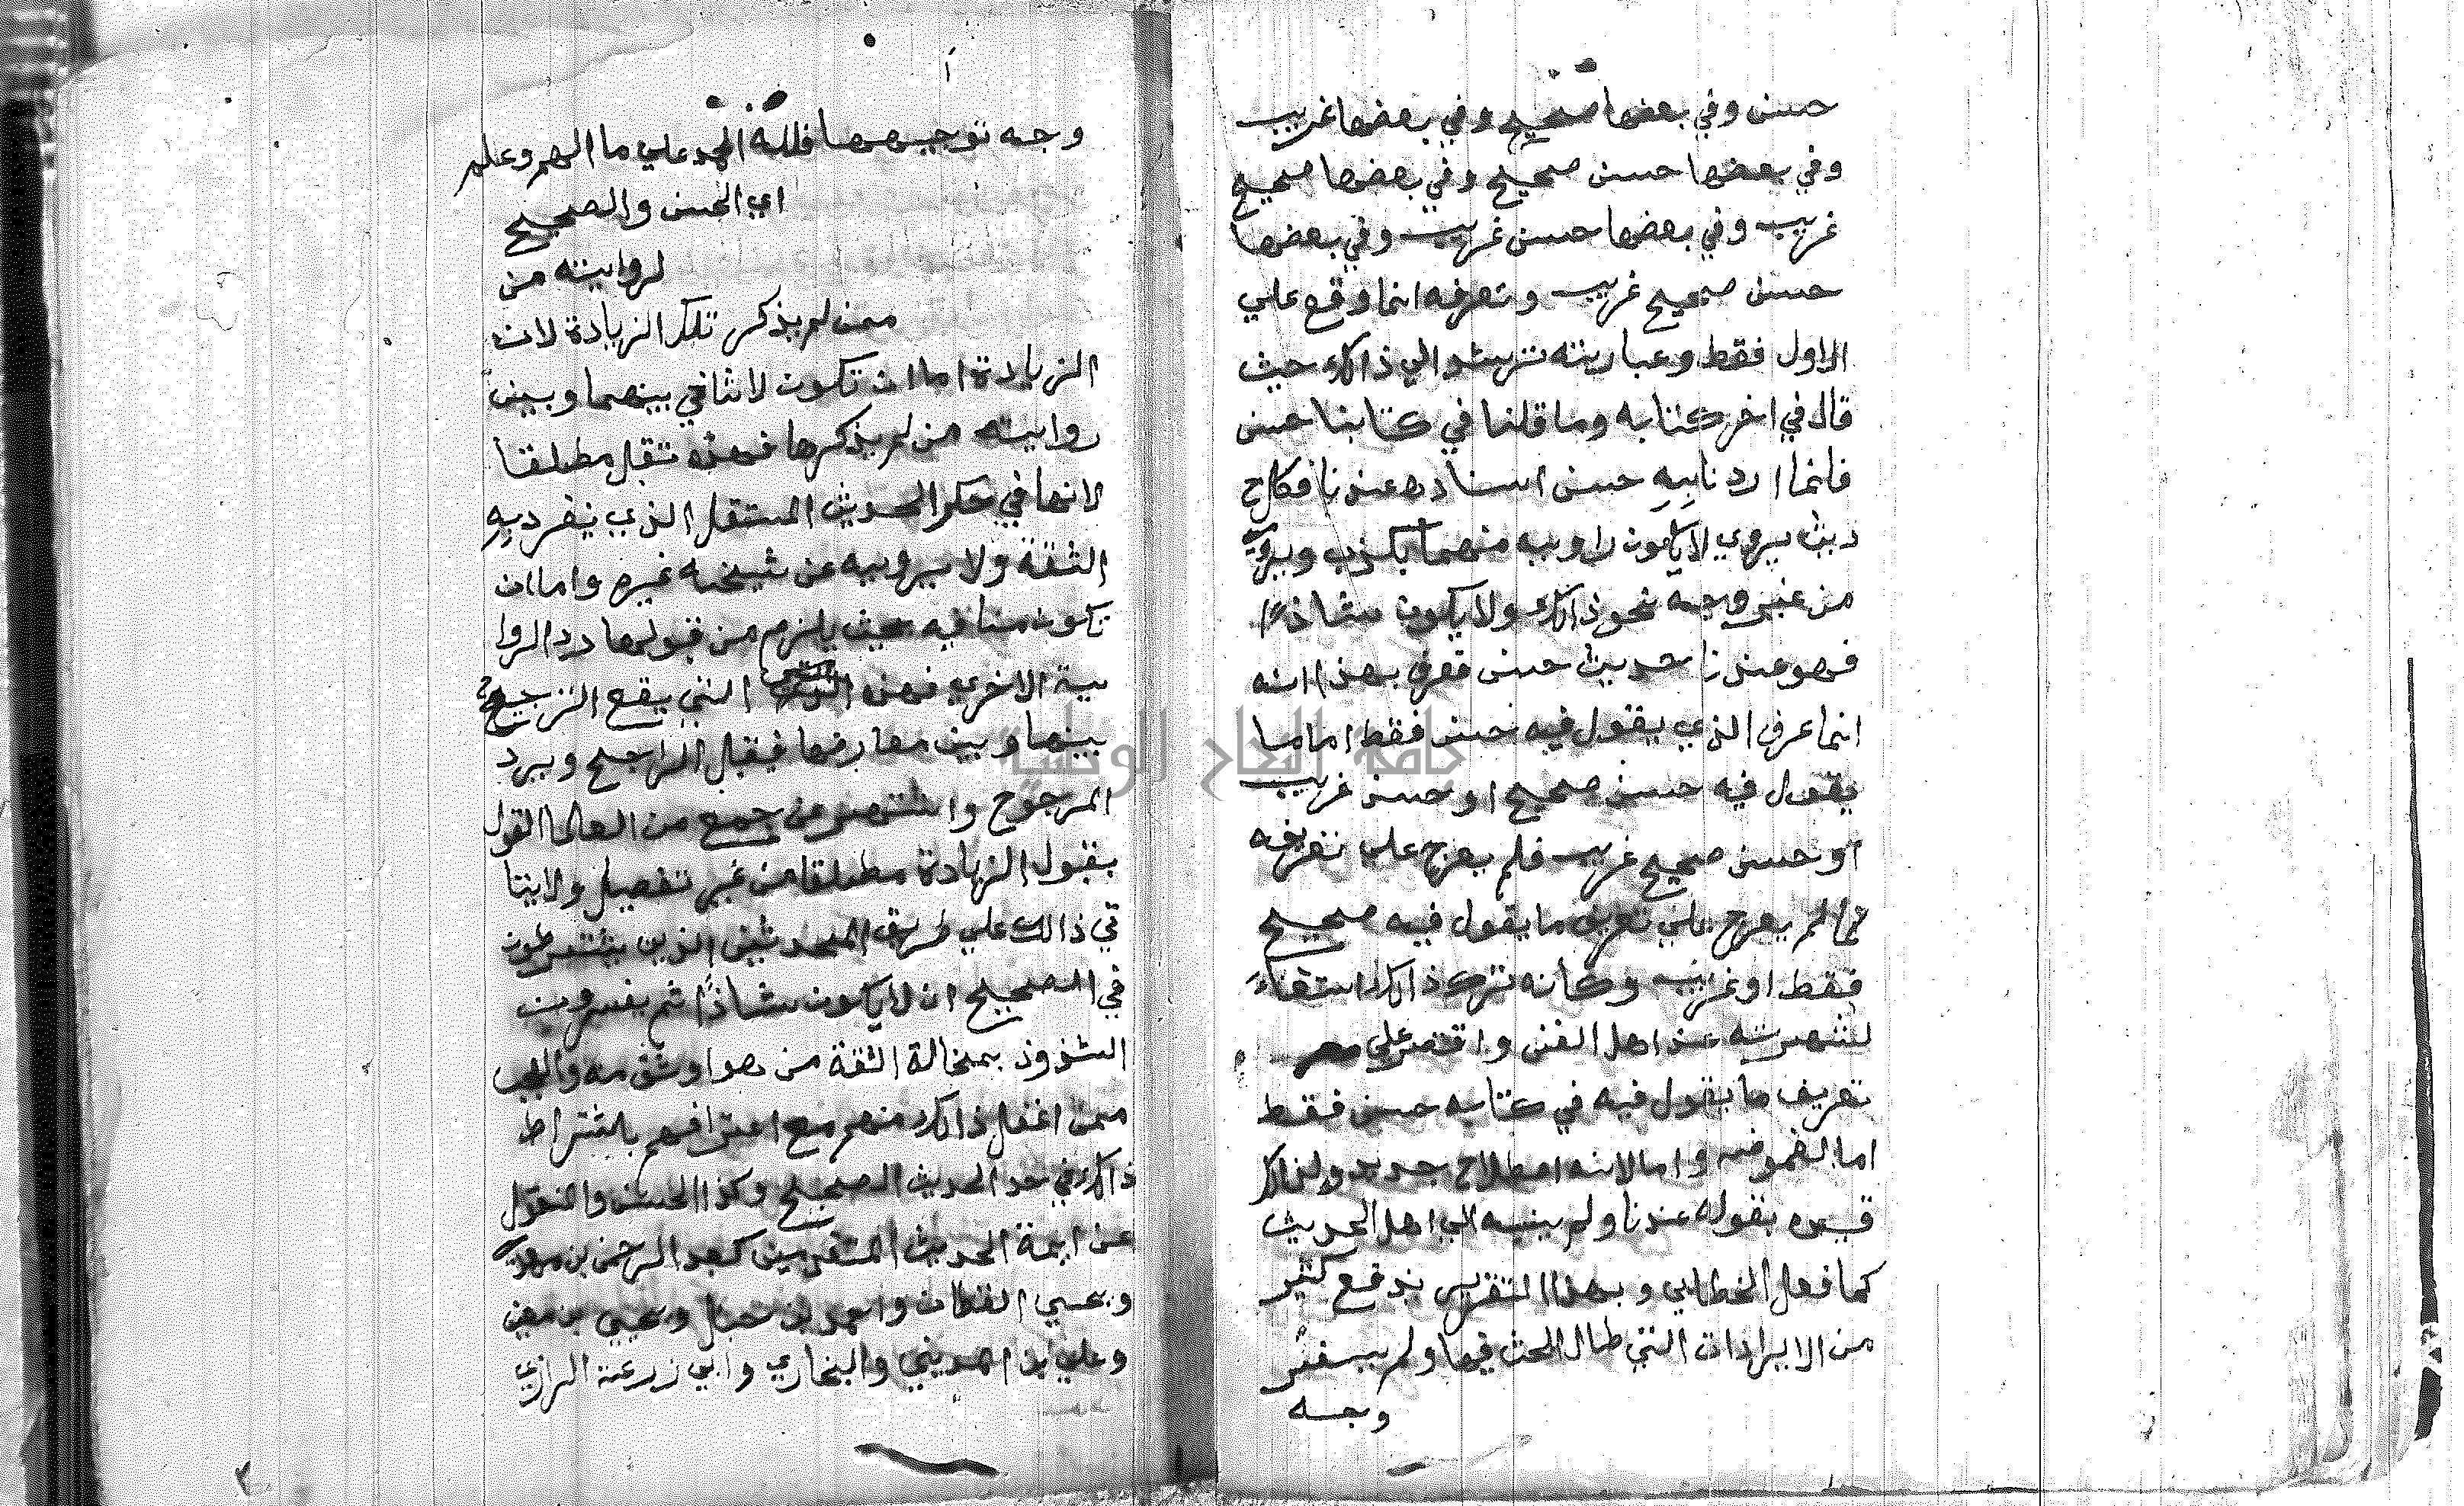 حسن وفي بعضها صحيح وفي بعضها غريب
وفي بعضها حسن صحيح وفي بعضها صحيح
غريب وفي بعضها حسن غريب وفي بعضها
حسن صحيح غريب وتعرفه انما وقع علي
الاول فقط وعباريته ترشد الي ذالك حيث
قال في اخر كتابه وما قلنا في كتابنا حسن
فانما اردنا بِهِ حسن اسناده عندنا فكل ح
ديث يروي لا يكون راويه متهما بكذب ويروي
من غير وجه نحو ذالك ولا يكون شاذًا
فهو عندنا حديث حسن فعرف بهذا انه
انما عرف الذي يقول فيه حسن فقط اما ما
يقول فيه حسن صحيح او حسن غريب
او حسن صحيح غريب فلم يعرج علي تعريفه
كما لم يعرج علي تعريف ما يقول فيه صحيح
فقط او غريب وكأنه ترك ذالك استغناءً
لشهرته عند اهل الفن واقتصر علي
تعريف ما يقول فيه في كتابه حسن فقط
اما لغموضه واما لانه اصطلاح جديد ولذالك
قيده بقوله عندنا ولم ينسبه الي اهل الحديث
كما فعل الخطابي وبهذا التقرير يندفع كثير
من الايرادات التي طال البحث فيها ولم يسفر
وجه
وجه توجيهها فلله الحمد علي ما الهم وعلم
اي الحسن والصحيح
لروايته من
ممن لم يذكر تلك الزيادة لان
الزيادة اما ان تكون لا تنافي بينهما وبين
روايته من لم يذكرها فهذه تقبل مطلقا
لانها في حكم الحديث المستقل الذي ينفرد بِهِ
الثقة ولا يرويه عن شيخه غيره واما ان
تكون منافيه بحيث يلزم من قبولها رد الروا
ية الاخري فهذه التي يقع الترجيح
بينها وبين معارضها فيقبل الراجح ويرد
المرجوح واشتهر عن جمع من العلما القول
بقبول الزيادة مطلقا من غير تفصيل ولا يتا
تي ذالك علي طريق المحدثين الذين يشترطون
في الصحيح ان لا يكون شاذًا ثم يفسرون
الشذوذ بمخالة الثقة من هو اوثق منه والعجب
ممن اغفل ذالك منهم مع اعترافهم باشتراط
ذالك في حد الحديث الصحيح وكذا الحسن والمنقول
عن ايمة الحديث المتقدمين كعبد الرحمن بن مهدي
ويحيي القطان واحمد بن حنبل ويحيي بن معين
وعلي بن المديني والبخاري وابي زرعة الرازي
جامعة النجاح الوطنية